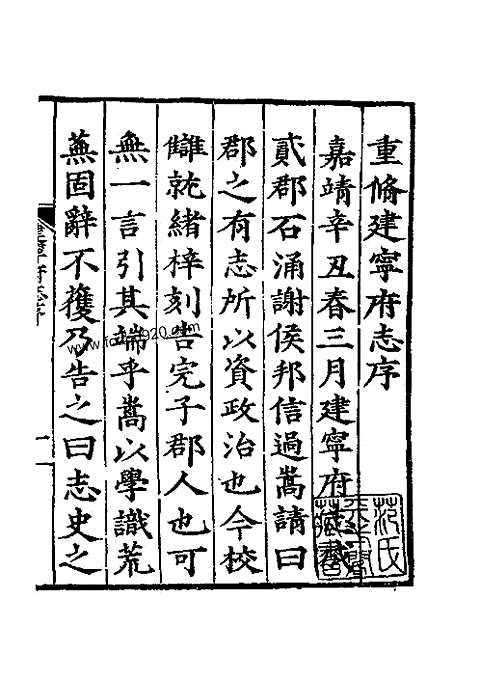 重脩建寧府志序
嘉靖辛丑春三月建寧府
貳郡石涌謝侯邦信過嵩請曰
郡之有志所以資政治也今校
讎就緒梓刻告完子郡人也可
無一言引其端乎嵩以學識荒
蕪固辭不獲乃告之曰志史之
范氏
天一閣
藏書